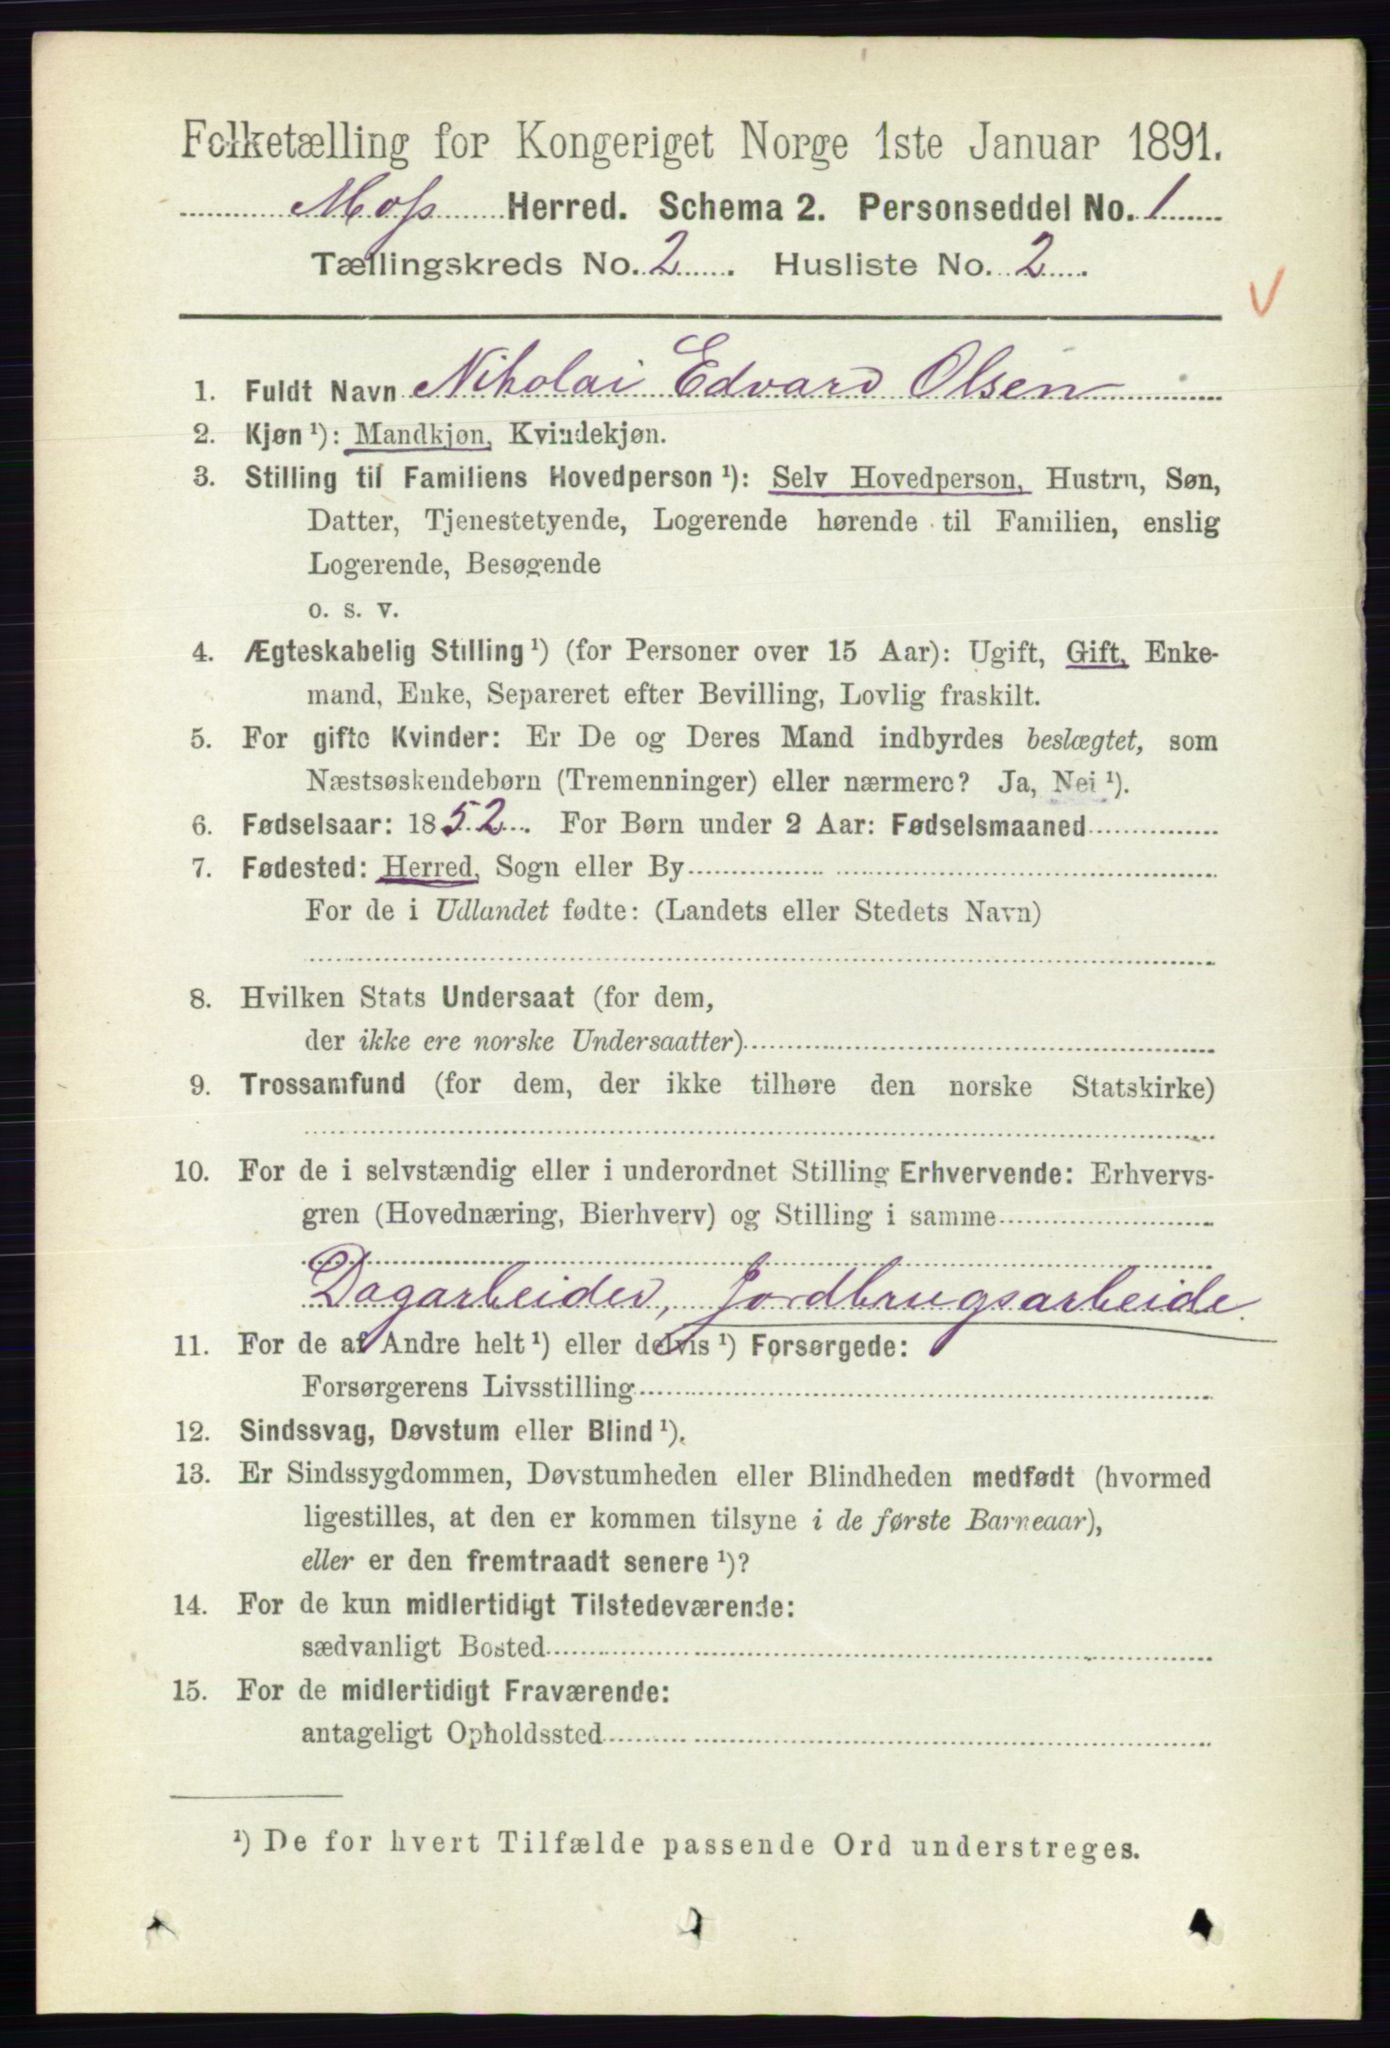 Folketælling for Kongeriget Norge 1ste Januar 1891.
Moss Herred. Schema 2. Personseddel No. 1
Tællingskreds No. 2. Husliste No. 2.
1. Fuldt Navn Nikolai Edvard Olsen
2. Kjøn ¹): Mandkjøn, Kvindekjøn.
3. Stilling til Familiens Hovedperson ¹): Selv Hovedperson, Hustru, Søn,
Datter, Tjenestetyende, Logerende hørende til Familien, enslig
Logerende, Besøgende
o. s. v.
4. Ægteskabelig Stilling ¹) (for Personer over 15 Aar): Ugift, Gift, Enke-
mand, Enke, Separeret efter Bevilling, Lovlig fraskilt.
5. For gifte Kvinder: Er De og Deres Mand indbyrdes beslægtet, som
Næstsøskendebørn (Tremenninger) eller nærmere? Ja, Nei ¹).
6. Fødselsaar: 1852. For Børn under 2 Aar: Fødselsmaaned
7. Fødested: Herred, Sogn eller By
For de i Udlandet fødte: (Landets eller Stedets Navn)
8. Hvilken Stats Undersaat (for dem,
der ikke ere norske Undersaatter)
9. Trossamfund (for dem, der ikke tilhøre den norske Statskirke)
10. For de i selvstændig eller i underordnet Stilling Erhvervende: Erhvervs-
gren (Hovednæring, Bierhverv) og Stilling i samme
Dagarbeider, Jordbrugsarbeide.
11. For de af Andre helt ¹) eller delvis ¹) Forsørgede:
Forsørgerens Livsstilling
12. Sindssvag, Døvstum eller Blind ¹).
13. Er Sindssygdommen, Døvstumheden eller Blindheden medfødt (hvormed
ligestilles, at den er kommen tilsyne i de første Barneaar),
eller er den fremtraadt senere ¹)?
14. For de kun midlertidigt Tilstedeværende:
sædvanligt Bosted
15. For de midlertidigt Fraværende:
antageligt Opholdssted
¹) De for hvert Tilfælde passende Ord understreges.